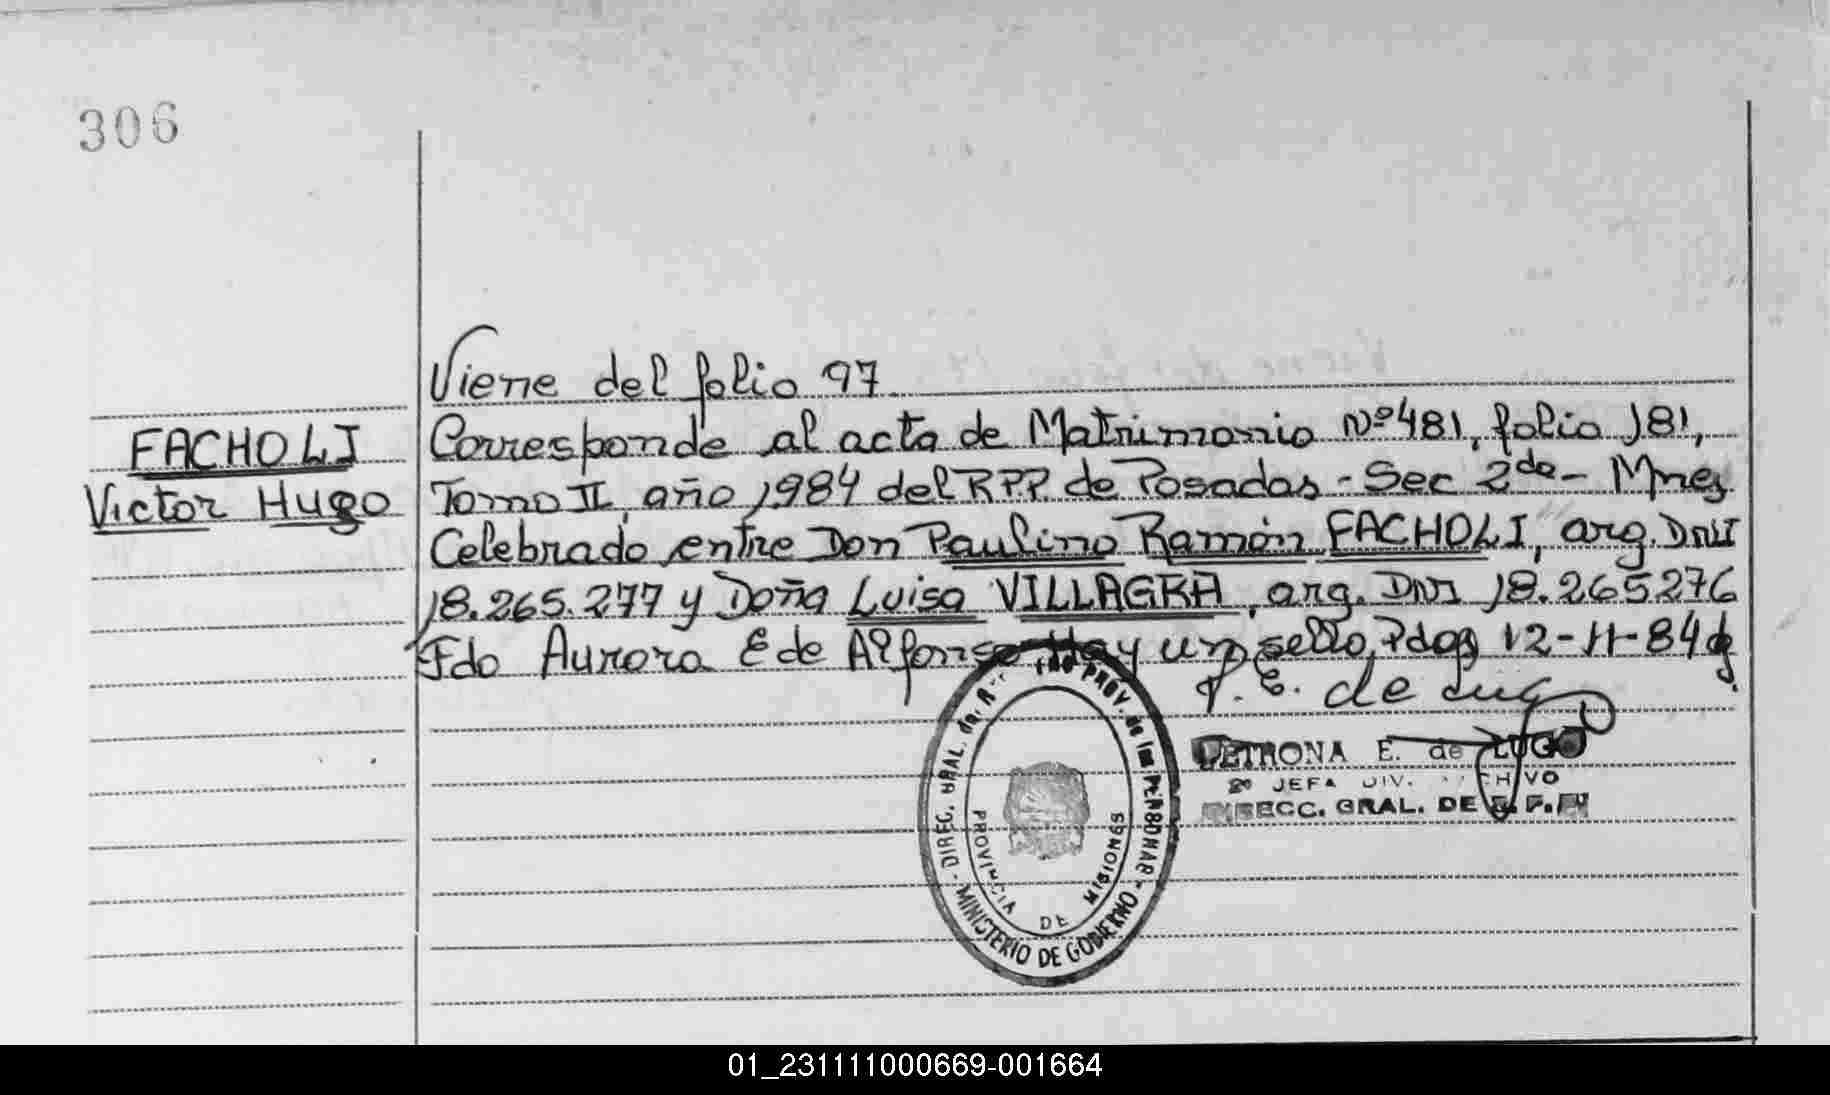 306
Viene del folio 97
FACHOLI
Victor Hugo
Corresponde al acta de Matrimonio Nº 481, folio 181,
Tomo II, año 1984 del RPP. de Posadas - Sec 2da - Mnes
Celebrado entre Don Paulino Ramón FACHOLI, arg. DNI
18.265.277 y Doña Luisa VILLAGRA, arg. DNI 18.265276
Fdo Aurora E de Alfonso Hay un sello, Pdas 12-11-84
P. E. de Lugo
PETRONA E. de LUGO
2º JEFA DIV. ARCHIVO
DIRECC. GRAL. DE
DIREC. GRAL. del PROV. de las PERSONAS - MINISTERIO DE GOBIERNO -
PROVINCIA DE MISIONES
01_231111000669-001664